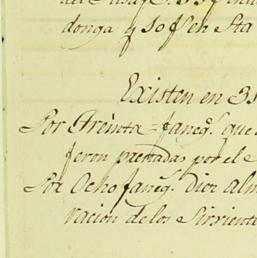 donga y 50 fs en Sta
Existen en 31
Por Treinta faneqs. que
feron prestadas por el
Por Ocho faneqs. diez alm
vacion de los Sirviente